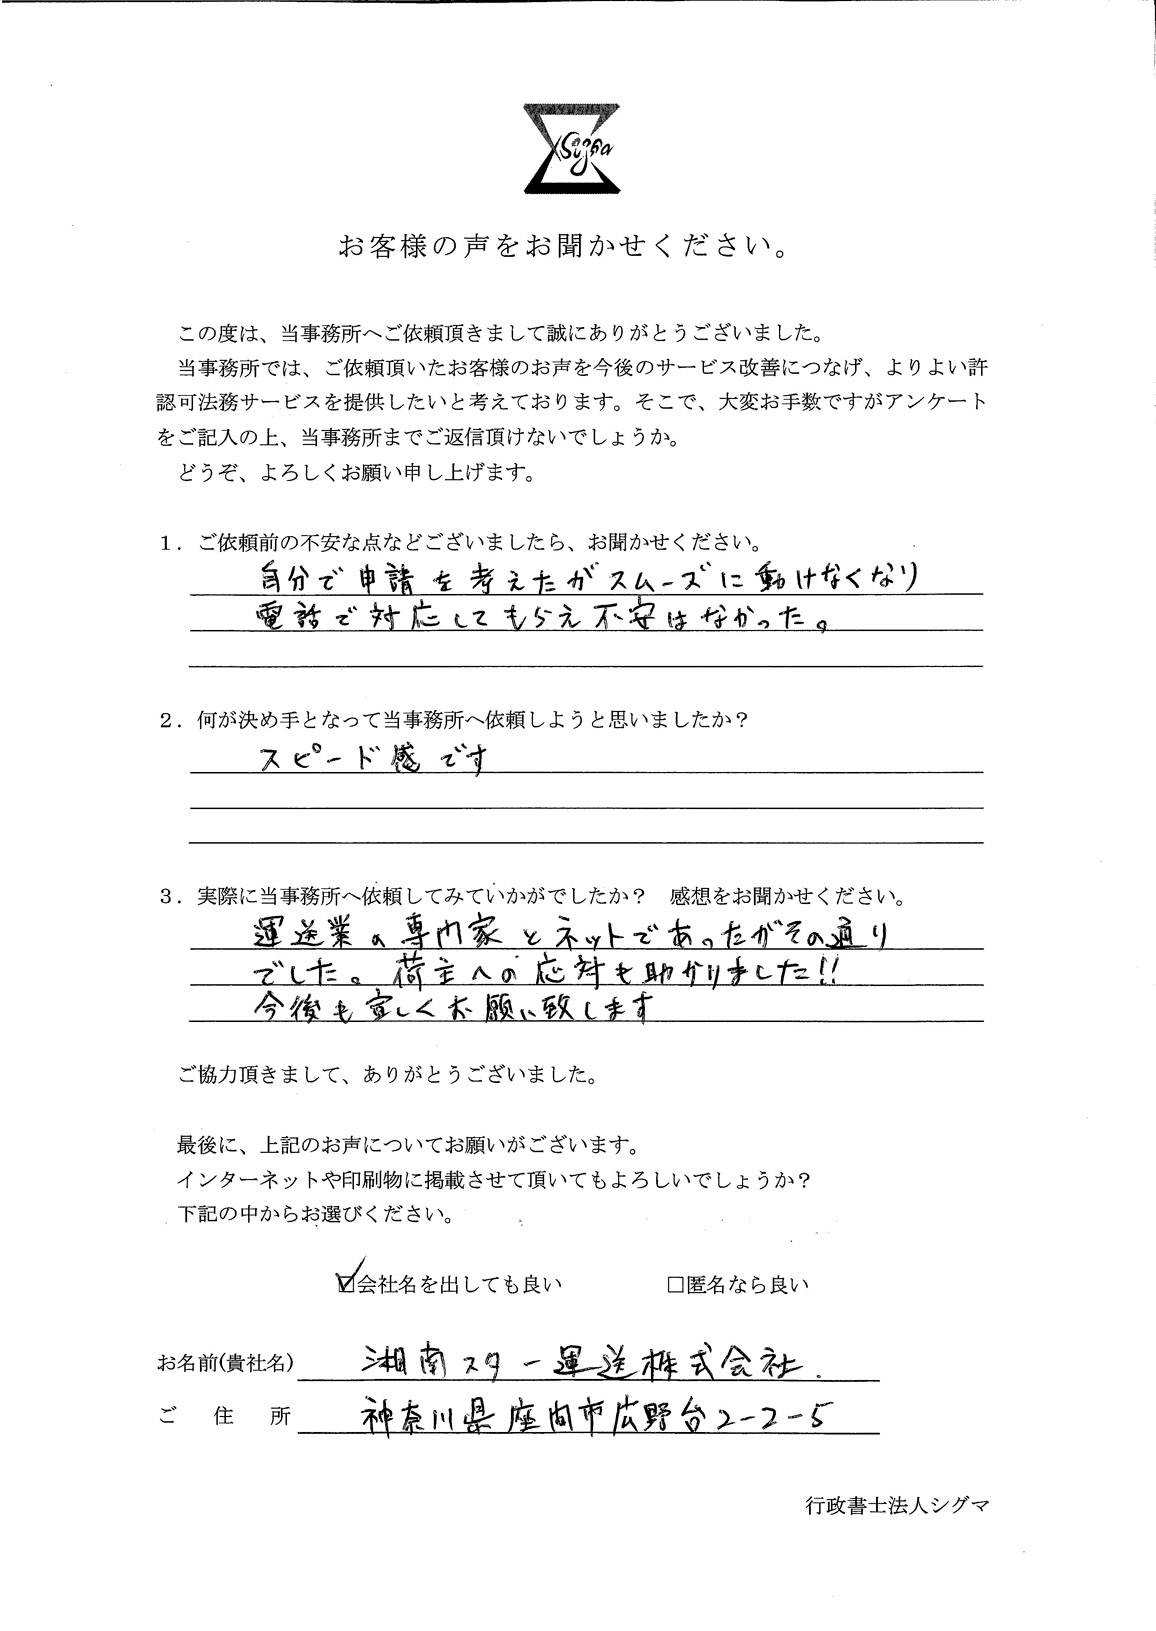 Sigma
お客様の声をお聞かせください。
この度は、当事務所へご依頼頂きまして誠にありがとうございました。
当事務所では、ご依頼頂いたお客様のお声を今後のサービス改善につなげ、よりよい許
認可法務サービスを提供したいと考えております。そこで、大変お手数ですがアンケート
をご記入の上、当事務所までご返信頂けないでしょうか。
どうぞ、よろしくお願い申し上げます。
1．ご依頼前の不安な点などございましたら、お聞かせください。
自分で申請を考えたがスムーズに動けなくなり
電話で対応してもらえ不安はなかった。
2．何が決め手となって当事務所へ依頼しようと思いましたか？
スピード感です
3．実際に当事務所へ依頼してみていかがでしたか？　感想をお聞かせください。
運送業の専門家とネットであったがその通り
でした。荷主への応対も助かりました!!
今後も宜しくお願い致します
ご協力頂きまして、ありがとうございました。
最後に、上記のお声についてお願いがございます。
インターネットや印刷物に掲載させて頂いてもよろしいでしょうか？
下記の中からお選びください。
☑会社名を出しても良い　□匿名なら良い
お名前(貴社名) 湘南スター運送株式会社.
ご住所 神奈川県座間市広野台2-2-5
行政書士法人シグマ